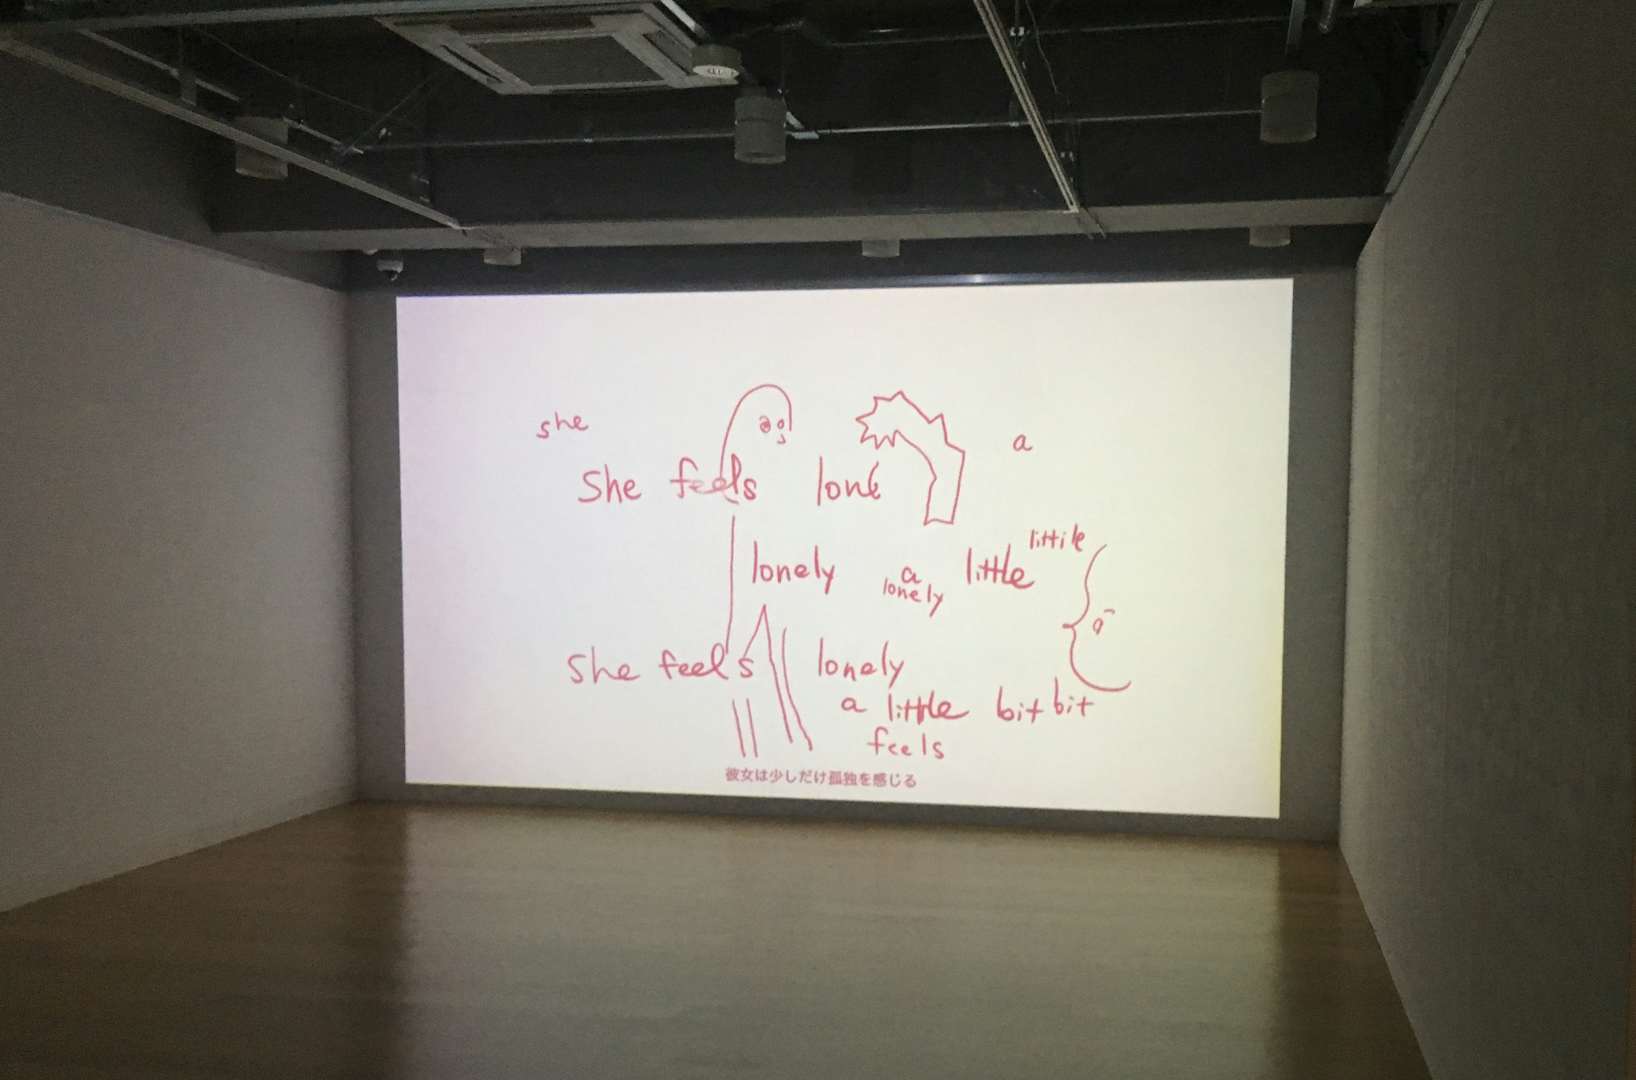 she
a
She feels lone
littile
lonely a little
lonely
a
she feels lonely
a little bit bit
feels
彼女は少しだけ孤独を感じる